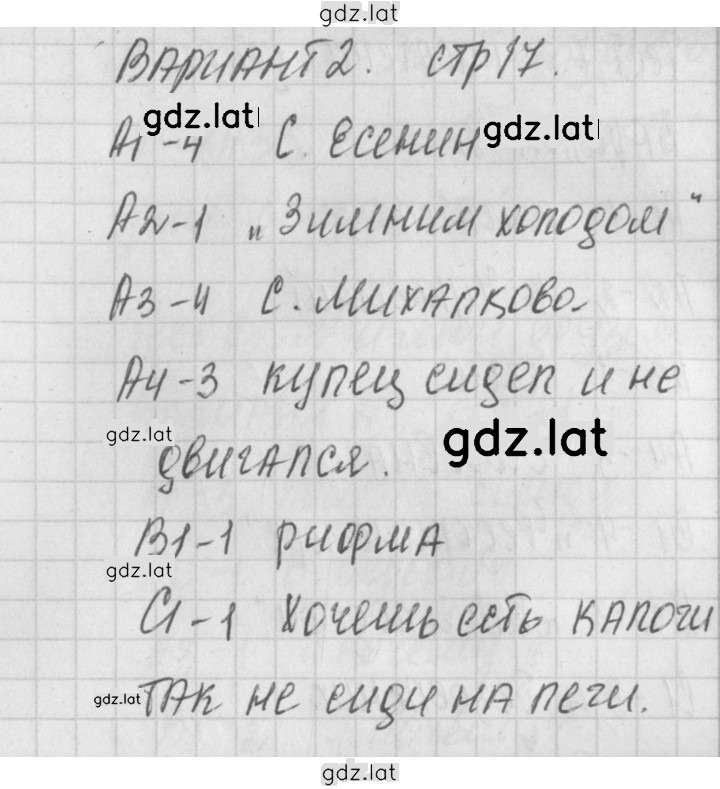 gdz.lat
ВАРИАНТ 2. стр 17.
gdz.lat
А1-4 С. Есенин gdz.lat
А2-1 „Зимним холодом"
А3-4 С. Михалкова
А4-3 купец сидел и не
gdz.lat gdz.lat
двигался.
В1-1 рифма
gdz.lat
С1-1 Хочешь есть калачи
gdz.lat ТАК не сиди на печи.
gdz.lat